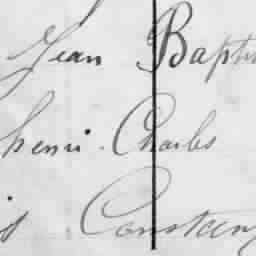 Jean Bapti
henri. Charles
is Constan